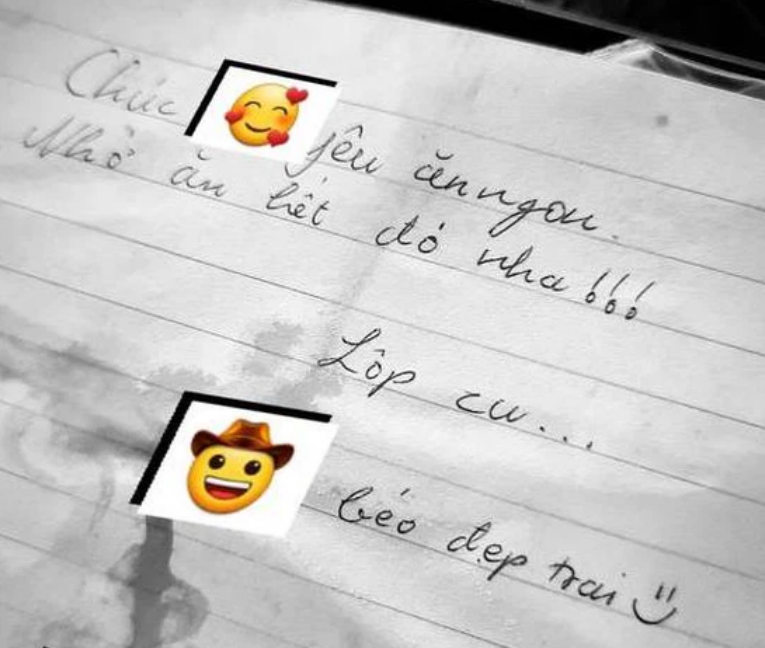 Chúc yêu ăn ngon.
Nhở ăn hết đó nha!!!
Lôp cu...
béo đẹp trai